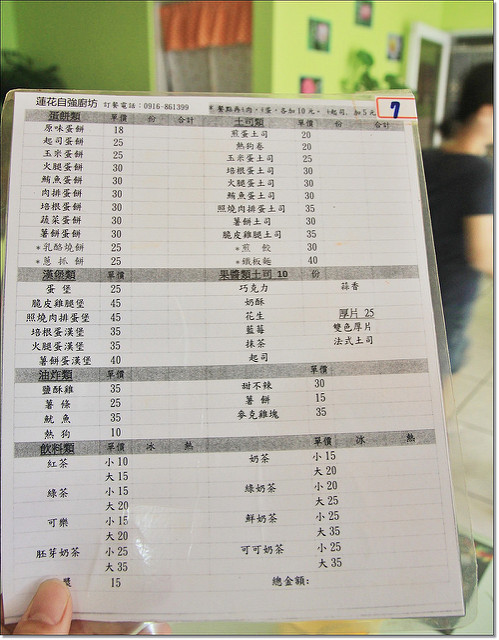 蓮花自強廚坊 訂餐電話:0916-861399 ※餐點再+肉、+蛋,各加10元。+起司,加5元 7
蛋餅類 單價 份 合計 土司類 單價 份 合計
原味蛋餅 18 煎蛋土司 20
起司蛋餅 25 熱狗卷 20
玉米蛋餅 25 玉米蛋土司 25
火腿蛋餅 30 培根蛋土司 30
鮪魚蛋餅 30 火腿蛋土司 30
肉排蛋餅 30 鮪魚蛋土司 30
培根蛋餅 30 照燒肉排蛋土司 35
蔬菜蛋餅 30 薯餅土司 30
薯餅蛋餅 30 脆皮雞腿土司 35
*乳酪燒餅 25 *煎餃 30
*蔥抓餅 25 *鐵板麵 40
漢堡類 單價 果醬類土司 10 份
蛋堡 25 巧克力 蒜香
脆皮雞腿堡 45 奶酥
照燒肉排蛋堡 45 花生 厚片 25
培根蛋漢堡 35 藍莓 雙色厚片
火腿蛋漢堡 35 抹茶 法式土司
薯餅蛋漢堡 40 起司
油炸類 單價 單價
鹽酥雞 35 甜不辣 30
薯條 25 薯餅 15
魷魚 35 麥克雞塊 35
熱狗 10
飲料類 單價 冰 熱 單價 冰 熱
紅茶 小10 奶茶 小15
大15 大20
綠茶 小15 綠奶茶 小20
大20 大25
可樂 小15 鮮奶茶 小25
大20 大35
胚芽奶茶 小25 可可奶茶 小25
大35 大35
漿 15 總金額: